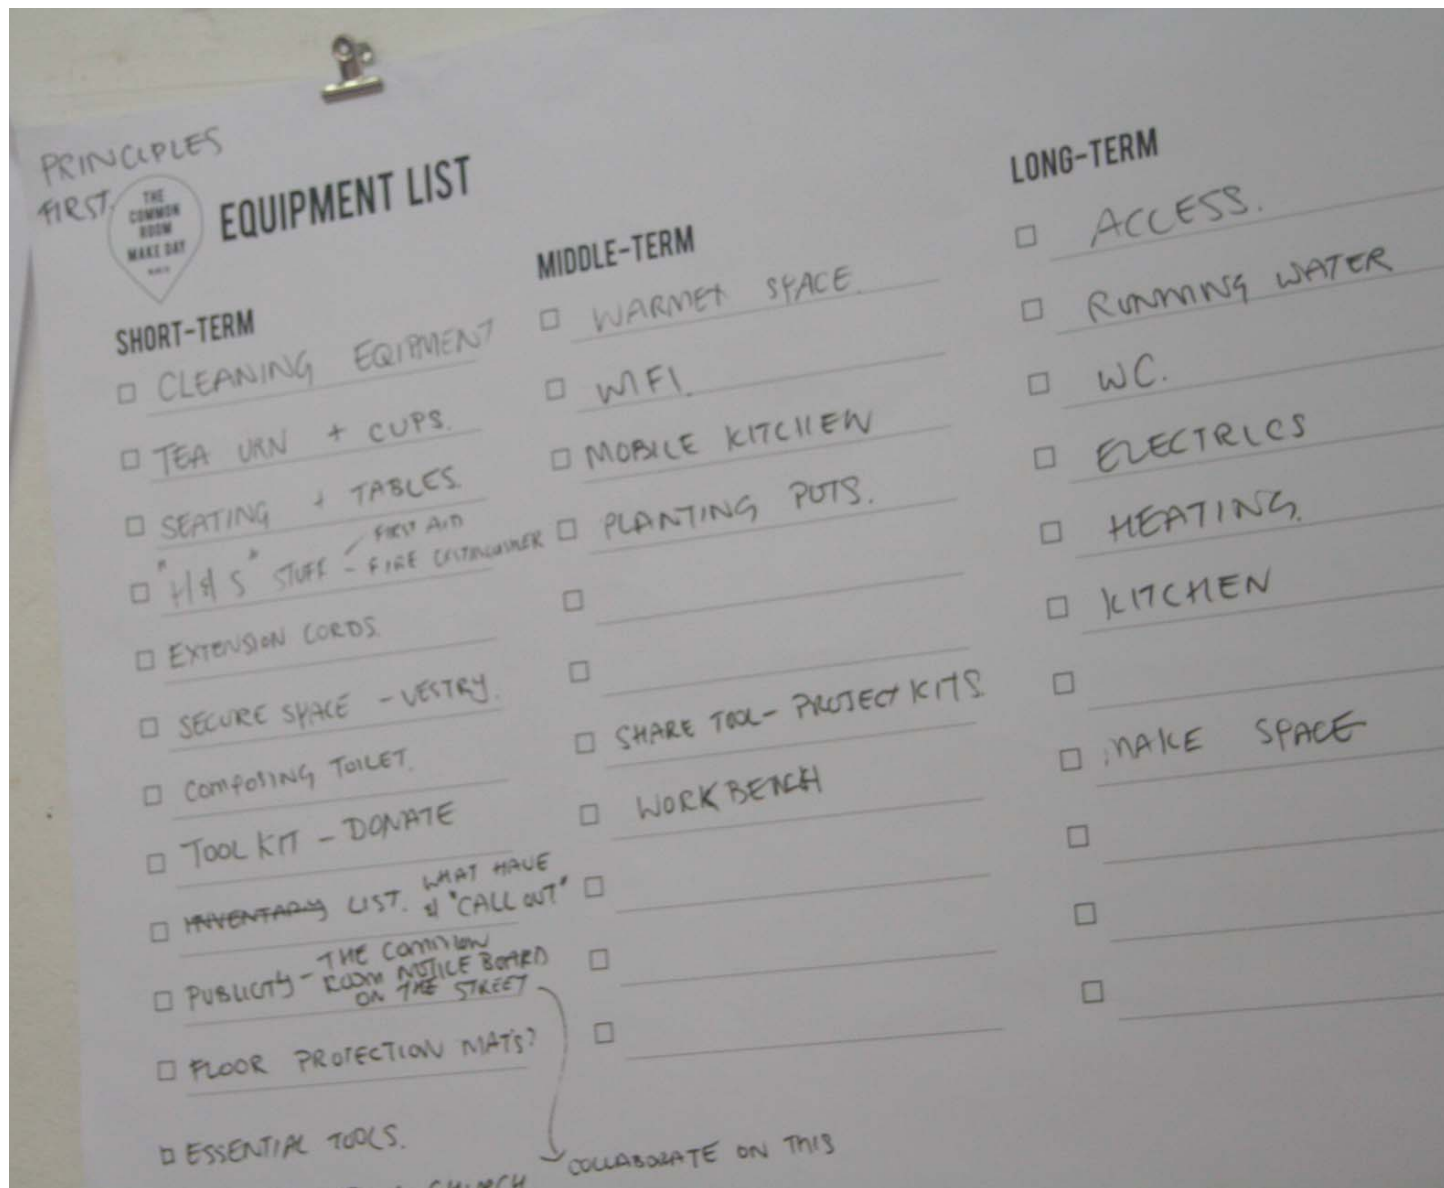 PRINCIPLES
FIRST.
THE
COMMON
ROOM
MAKE DAY
EQUIPMENT LIST
SHORT-TERM
CLEANING EQIPMENT
TEA URN + CUPS.
SEATING + TABLES.
"H&S" STUFF - FIRST AID
- FIRE EXTINGUISHER
EXTENSION CORDS.
SECURE SPACE - VESTRY.
COMPOTING TOILET.
TOOL KIT - DONATE
INVENTARY LIST. WHAT HAVE
& "CALL OUT"
PUBLICITY - THE COMMON
ROOM NOTICE BOARD
ON THE STREET
FLOOR PROTECTION MATS?
ESSENTIAL TOOLS.
CHURCH
COLLABORATE ON THIS
MIDDLE-TERM
WARMER SPACE.
WIFI.
MOBILE KITCHEN
PLANTING POTS.
SHARE TOOL - PROJECT KITS
WORKBENCH
LONG-TERM
ACCESS.
RUNNING WATER
WC.
ELECTRICS
HEATING.
KITCHEN
MAKE SPACE